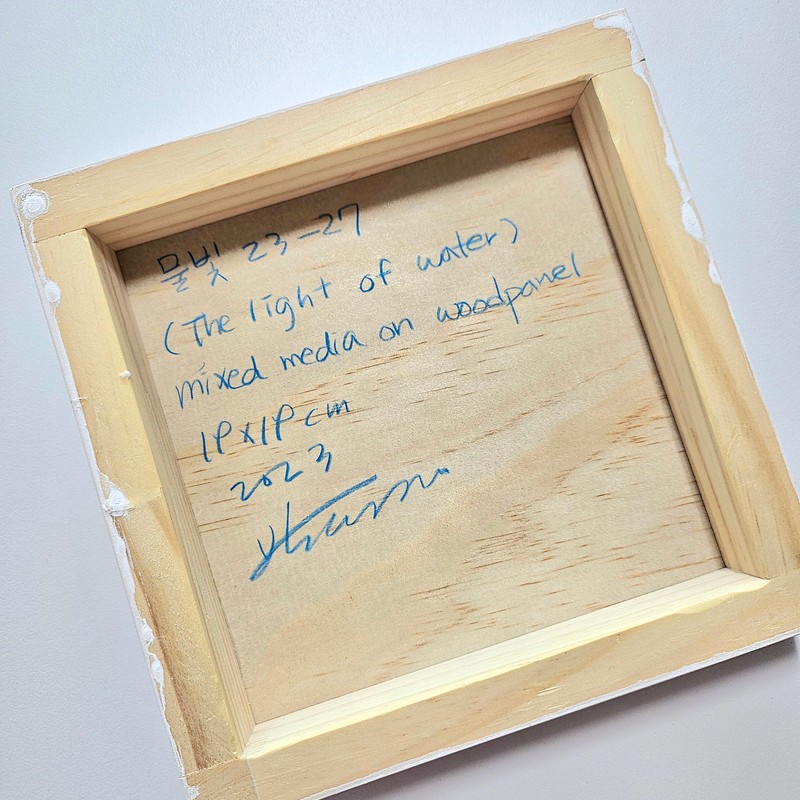 물빛 23-27
(The light of water)
mixed media on woodpanel
19x19cm
2023